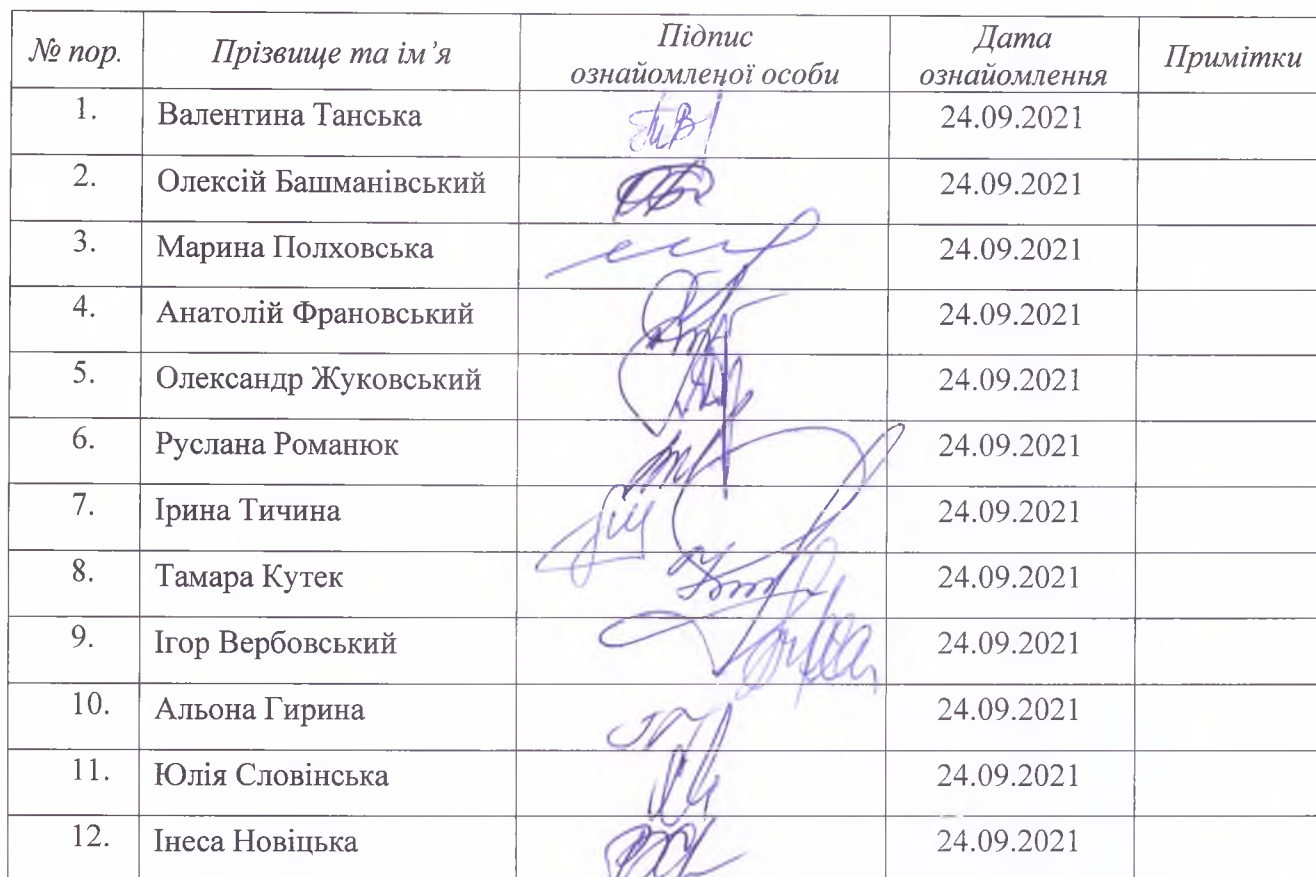 № пор. Прізвище та ім’я Підпис ознайомленої особи Дата ознайомлення Примітки
1. Валентина Танська 24.09.2021
2. Олексій Башманівський 24.09.2021
3. Марина Полховська 24.09.2021
4. Анатолій Франовський 24.09.2021
5. Олександр Жуковський 24.09.2021
6. Руслана Романюк 24.09.2021
7. Ірина Тичина 24.09.2021
8. Тамара Кутек 24.09.2021
9. Ігор Вербовський 24.09.2021
10. Альона Гирина 24.09.2021
11. Юлія Словінська 24.09.2021
12. Інеса Новіцька 24.09.2021